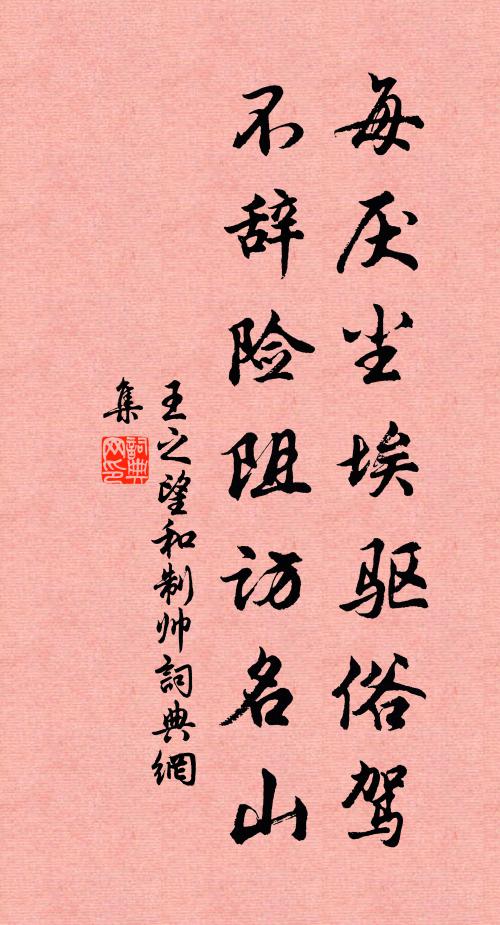 每厌尘埃驱俗驾
不辞险阻访名山
王之望和制帅詞典網
集
詞典
网印